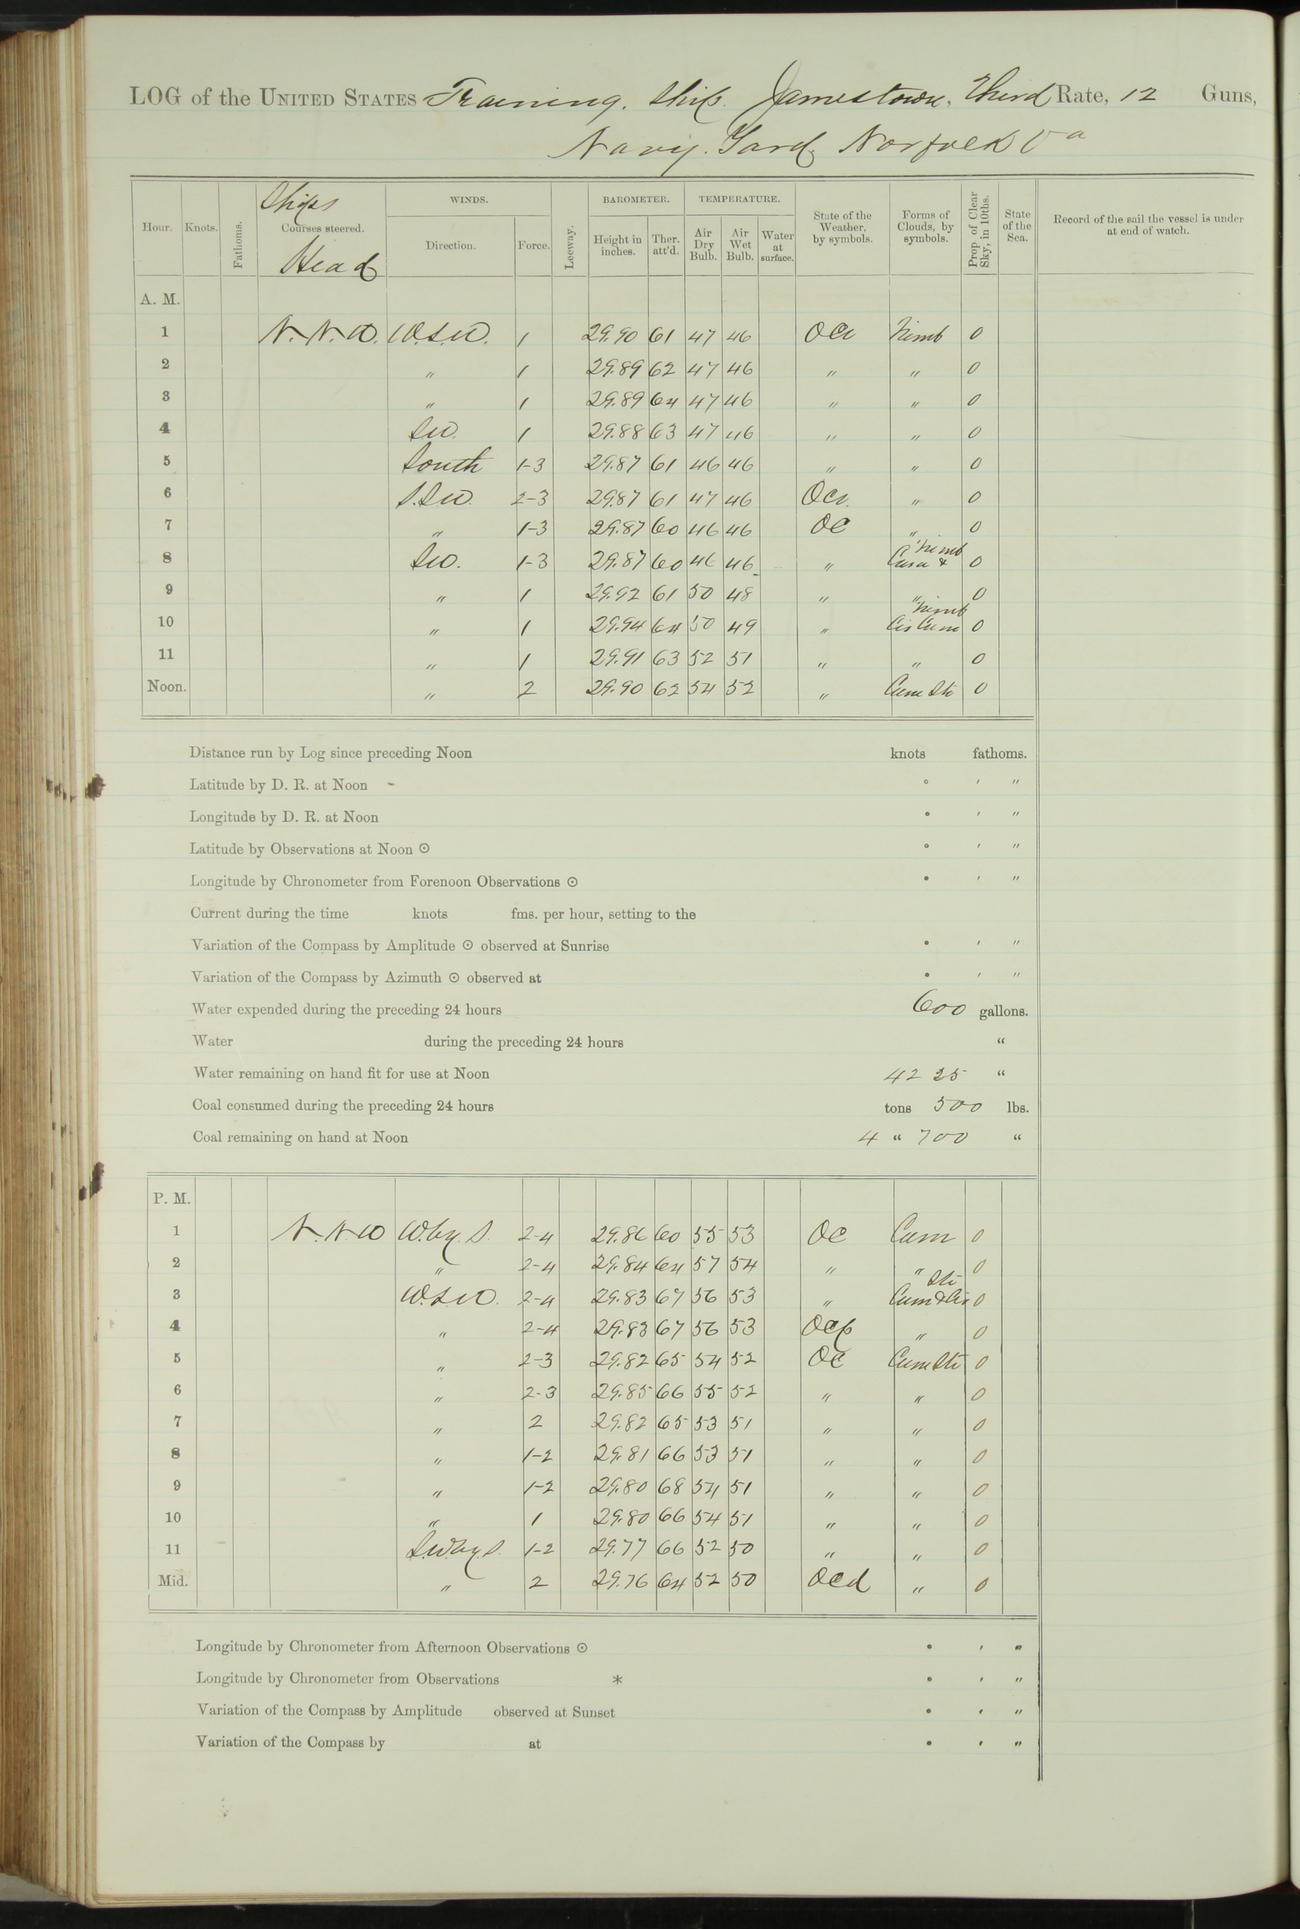 LOG of the UNITED STATES Training Ship Jamestown, Third Rate, 12 Guns,
Navy Yard, Norfolk Va
Hour. Knots. Fathoms. Ships Courses steered. Head WINDS. Direction. Force. Leeway. BAROMETER. Height in inches. Ther. att'd. TEMPERATURE. Air Dry Bulb. Air Wet Bulb. Water at surface. State of the Weather, by symbols. Forms of Clouds, by symbols. Prop of Clear Sky, in 10ths. State of the Sea. Record of the sail the vessel is under at end of watch.
A. M.
1 N.N.W. W.S.W. 1 29.90 61 47 46 Nimb 0
2 " 1 29.89 62 47 46 " " 0
3 " 1 29.89 64 47 46 " " 0
4 SW. 1 29.88 63 47 46 " " 0
5 South 1-3 29.87 61 46 46 " " 0
6 S.SW. 2-3 29.87 61 47 46 " 0
7 " 1-3 29.87 60 46 46 OC " 0
8 SW. 1-3 29.87 60 46 46 " Nimb 0
9 " 1 29.92 61 50 48 " " 0
10 " 1 29.94 64 50 49 " Nimb Cir Cum 0
11 " 1 29.91 63 52 51 " " 0
Noon. " 2 29.90 62 54 52 " Cum Str 0
Distance run by Log since preceding Noon knots fathoms.
Latitude by D. R. at Noon - ° ' "
Longitude by D. R. at Noon ° ' "
Latitude by Observations at Noon ⊙ ° ' "
Longitude by Chronometer from Forenoon Observations ⊙ ° ' "
Current during the time knots fms. per hour, setting to the
Variation of the Compass by Amplitude ⊙ observed at Sunrise ° ' "
Variation of the Compass by Azimuth ⊙ observed at ° ' "
Water expended during the preceding 24 hours 600 gallons.
Water during the preceding 24 hours "
Water remaining on hand fit for use at Noon 4225 "
Coal consumed during the preceding 24 hours tons 500 lbs.
Coal remaining on hand at Noon 4 " 700 "
P. M.
1 N.NW W.by.S. 2-4 29.86 60 55 53 OC Cum 0
2 " 2-4 29.84 64 57 54 " " 0
3 W.SW. 2-4 29.83 67 56 53 " Str Cum & Cir 0
4 " 2-4 29.83 67 56 53 OCp " 0
5 " 2-3 29.82 65 54 52 OC Cum Str 0
6 " 2-3 29.85 66 55 52 " " 0
7 " 2 29.82 65 53 51 " " 0
8 " 1-2 29.81 66 53 51 " " 0
9 " 1-2 29.80 68 54 51 " " 0
10 " 1 29.80 66 54 51 " " 0
11 S.W.by.S. 1-2 29.77 66 52 50 " " 0
Mid. " 2 29.76 64 52 50 OCd " 0
Longitude by Chronometer from Afternoon Observations ⊙ ° ' "
Longitude by Chronometer from Observations * ° ' "
Variation of the Compass by Amplitude observed at Sunset ° ' "
Variation of the Compass by at ° ' "